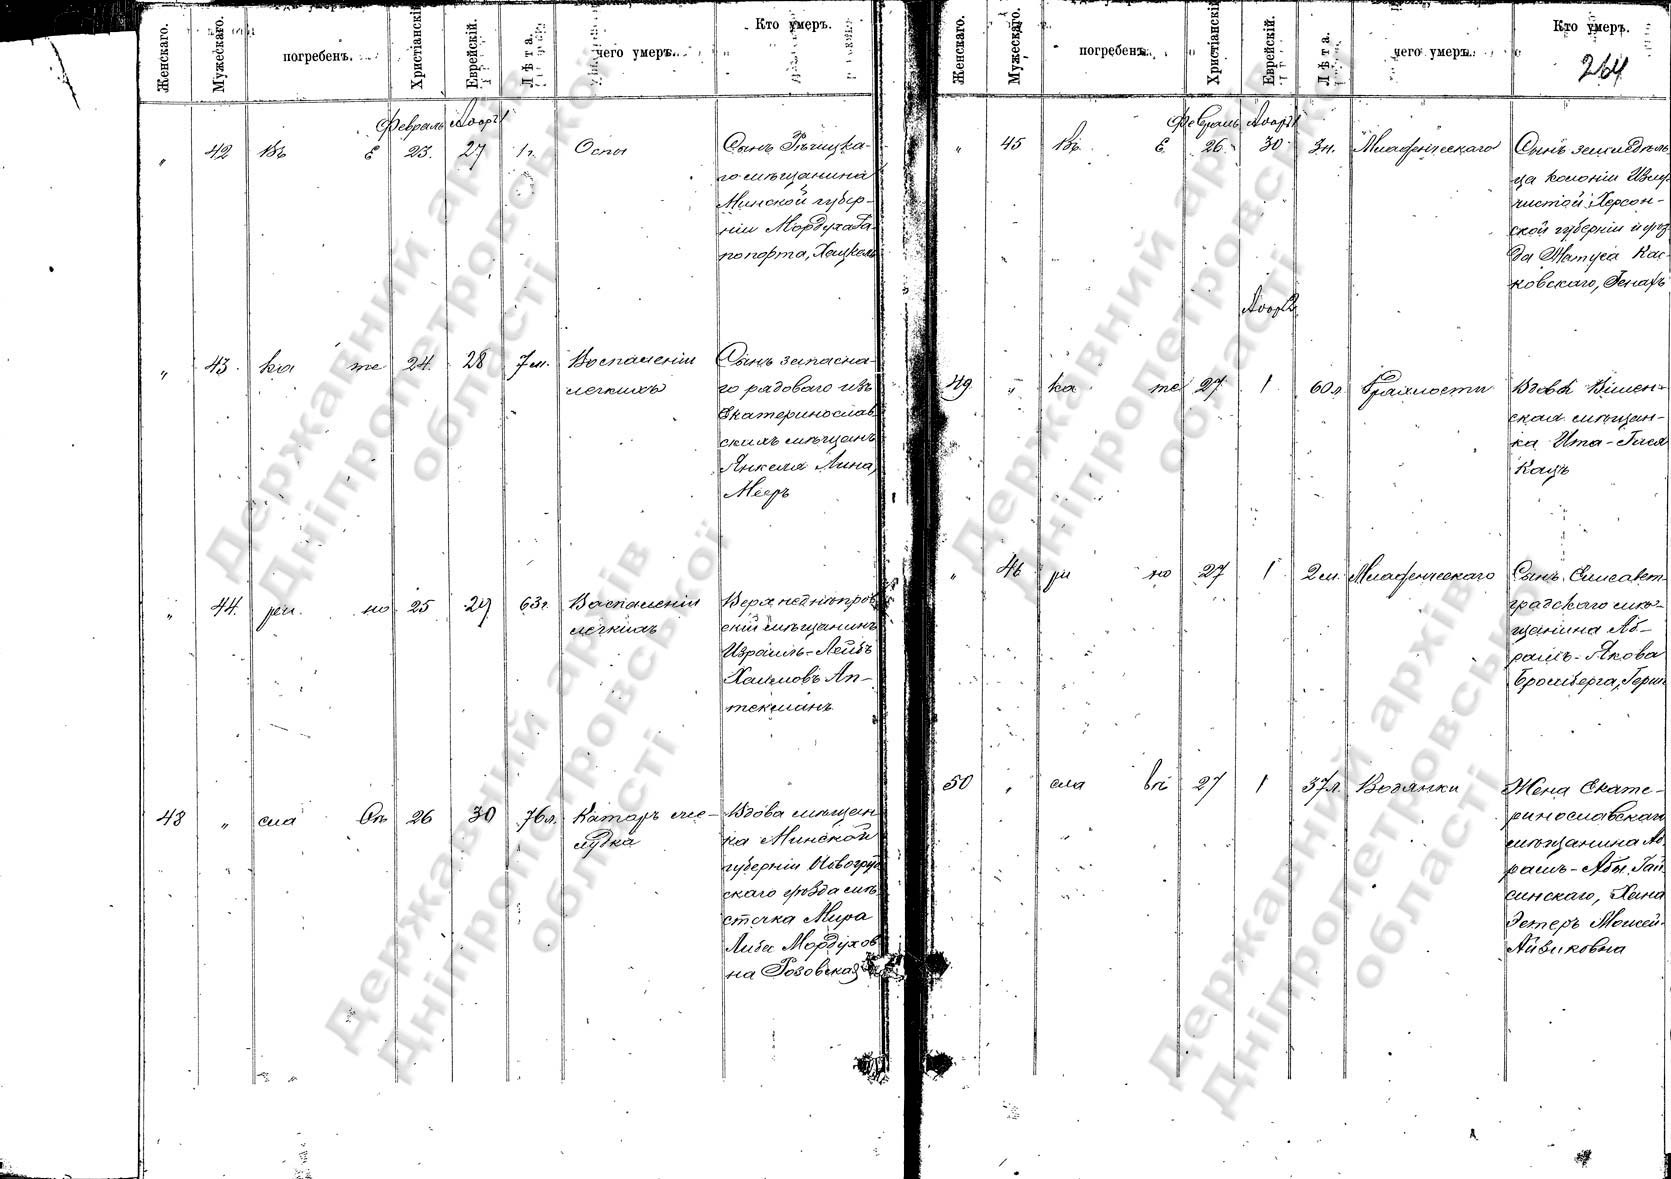 Женскаго.
Мужескаго.
погребенъ.
Христіанскій
Еврейскій.
Лѣта.
чего умеръ.
Кто умеръ.
Февраль Адаръ 1
„ 42 Въ Е 23. 27 1 г. Оспы
Сынъ Рѣчицка-
го мѣщанина
Минской губер-
ніи Мордуха Ра-
попорта, Хацкель
„ 43. ка те 24. 28 7 м. Воспаленіи
легкихъ
Сынъ запасна-
го рядоваго изъ
Екатеринослав
скихъ мѣщанъ
Янкеля Лина,
Мееръ
„ 44. ри но 25 29 63 г. Воспаленіи
легкихъ
Верхнеднѣпров
скій мѣщанинъ
Израиль-Лейбъ
Хаимовъ Ап-
текманъ
48 „ сла Въ 26 30 76 л. Катаръ же-
лудка
Вдова мѣщан
ка Минской
губерніи Новогруд
скаго уѣзда мѣ
стечка Мира
Либа Мордухов
на Розовская
Женскаго.
Мужескаго.
погребенъ.
Христіанскій
Еврейскій.
Лѣта.
чего умеръ.
Кто умеръ.
264
Февраль Адаръ 1
„ 45 Въ Е 26. 30 3 н. Младенческаго
Сынъ земледѣль
ца колоніи Излу
чистой, Херсон-
ской губерніи и уѣз
да Матуса Кас-
ковскаго, Генахъ
Адаръ 2
49 „ ка те 27 1 60 л. Дряхлости
Вдова Вилен-
ская мѣщан-
ка Ита-Гися
Кацъ
„ 46 ри но 27 1 2 м. Младенческаго
Сынъ Елисавет
градскаго мѣ-
щанина Аб-
рамъ-Якова
Бромберга, Герш
50 „ сла Въ 27 1 37 л. Водянки
Жена Екате-
ринославскаго
мѣщанина Аб
рамъ-Абы Гай
синскаго, Хана
Эстеръ Моисей-
Айзиковна
Державний архів
Дніпропетровської
області
Державний архів
Дніпропетровської
області
Державний архів
Дніпропетровської
області
Державний архів
Дніпропетровської
області